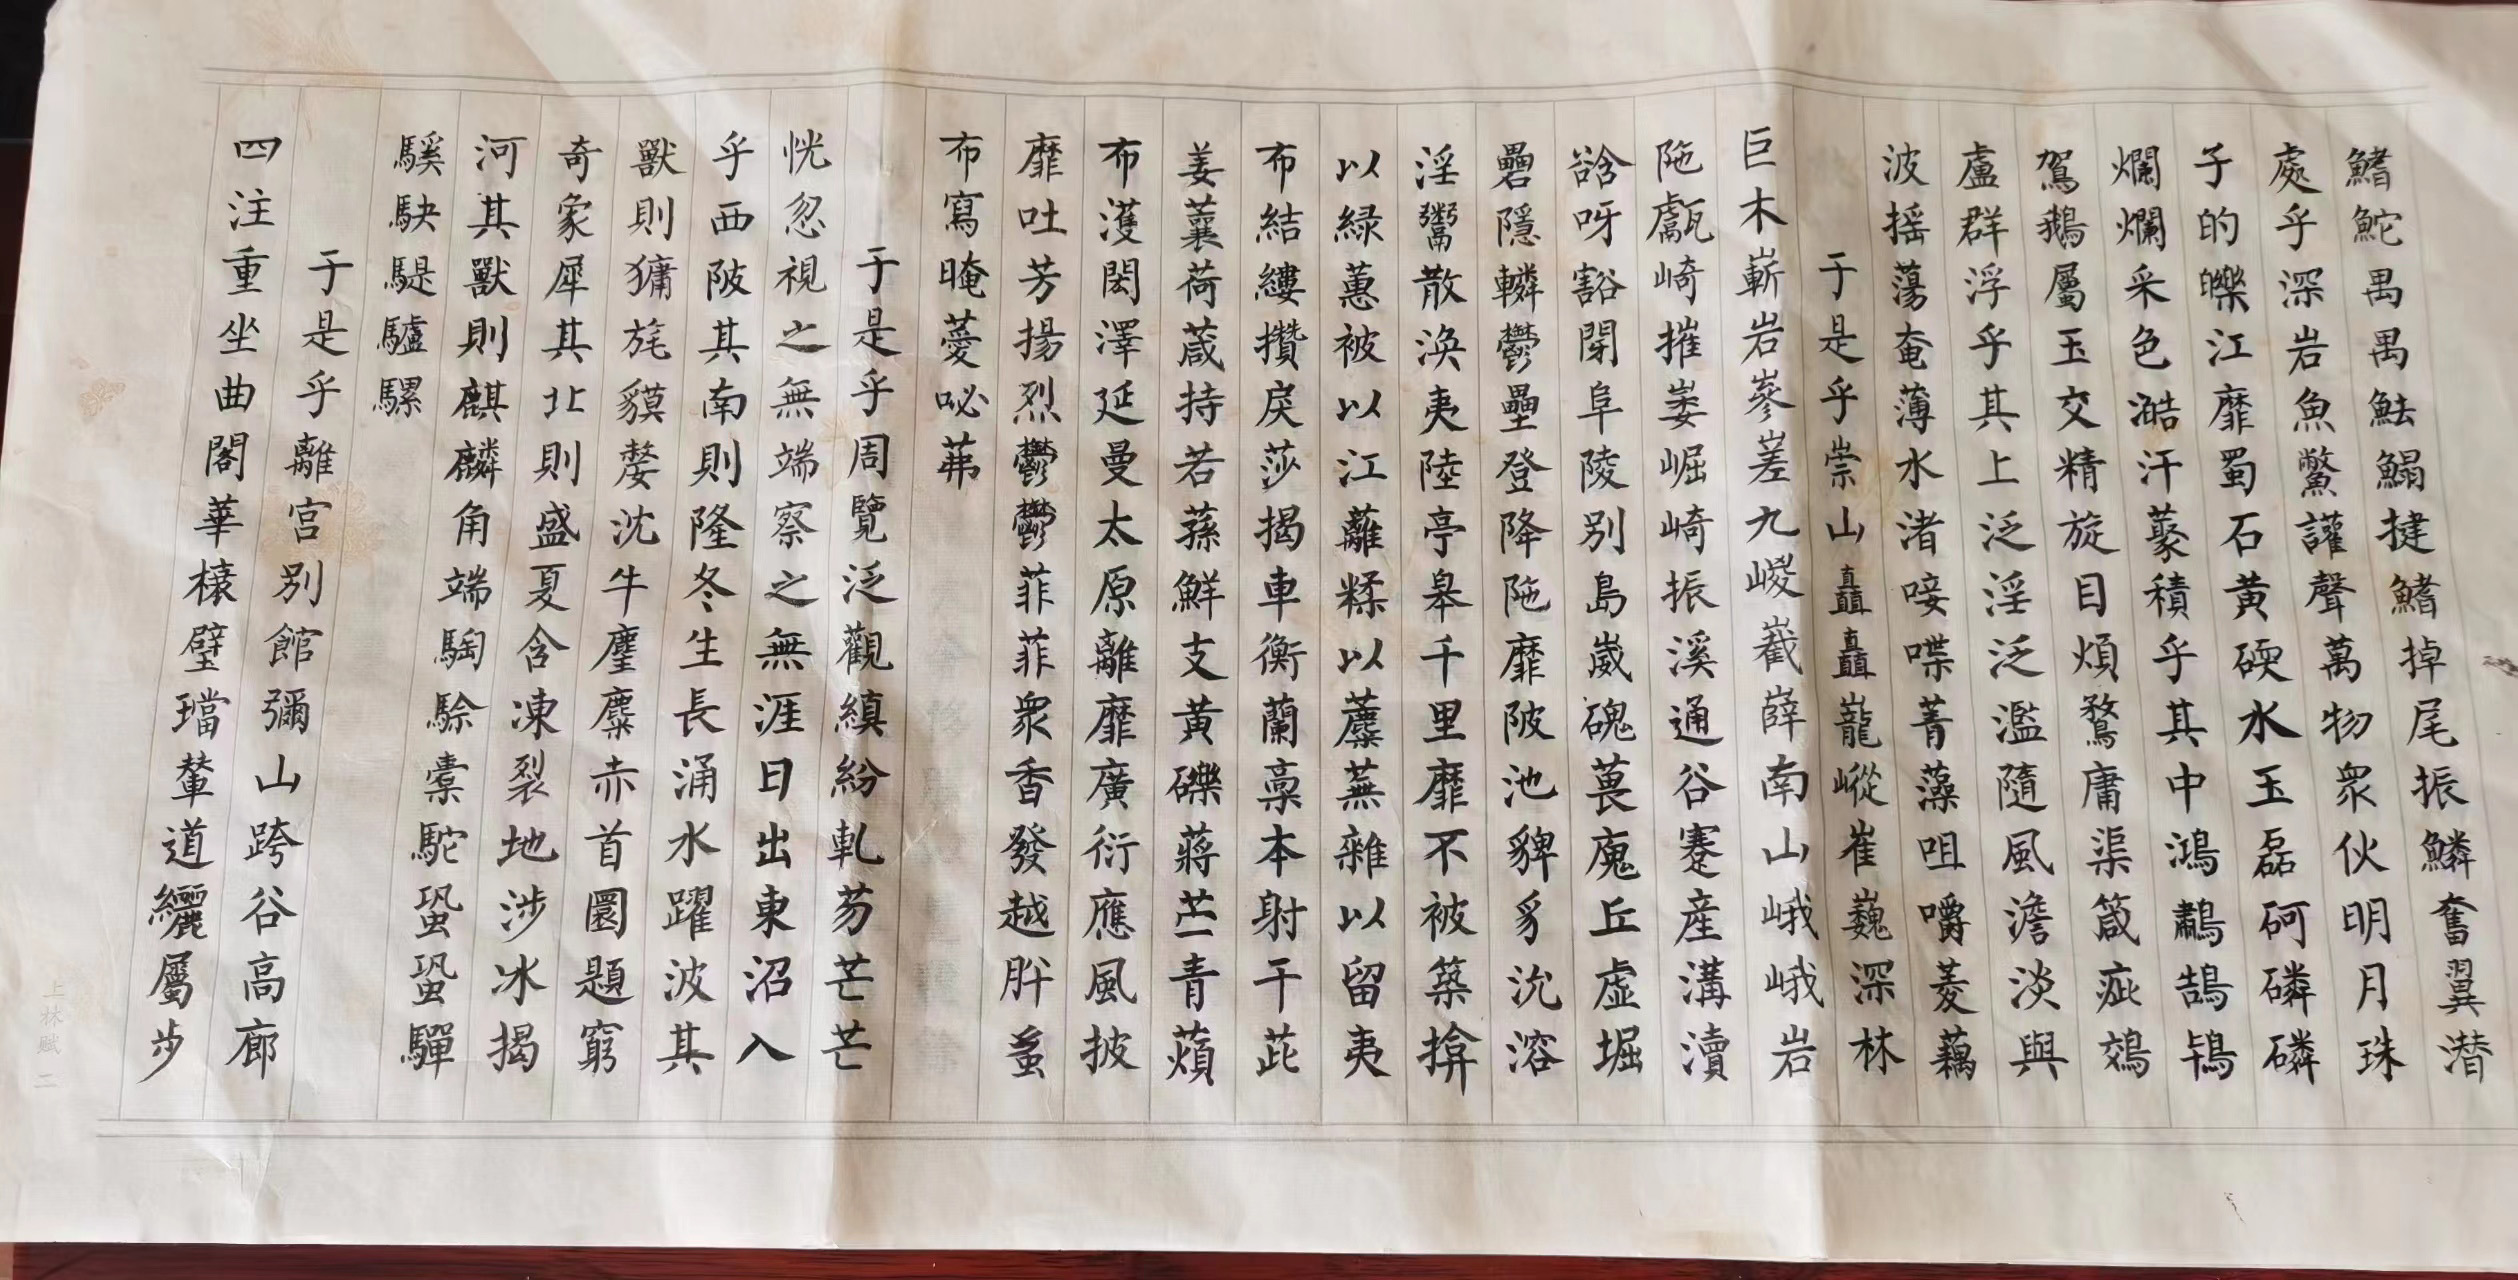 鰭鮀禺禺魼鰨揵鰭掉尾振鱗奮翼潜
處乎深岩魚鱉讙聲萬物衆伙明月珠
子的皪江靡蜀石黃碝水玉磊砢磷磷
爛爛采色澔汗藂積乎其中鴻鷫鵠鴇
鴐鵝屬玉交精旋目煩鶩庸渠箴疵鵁
盧群浮乎其上泛淫泛濫隨風澹淡與
波摇蕩奄薄水渚唼喋菁藻咀嚼菱藕
于是乎崇山矗矗巃嵷崔巍深林
巨木嶄岩嵾嵳九嵕嶻嶭南山峨峨岩
陁甗崎摧崣崛崎振溪通谷蹇産溝瀆
谽呀豁閜阜陵别島崴磈葨廆丘虚堀
礨隱轔鬱壘登降陁靡陂池貏豸沇溶
淫鬻散渙夷陸亭皋千里靡不被築揜
以緑蕙被以江蘺糅以蘪蕪雜以留夷
布結縷攢戾莎揭車衡蘭槀本射干茈
姜蘘荷葴持若蓀鮮支黃礫蔣苎青薠
布濩閎澤延曼太原離靡廣衍應風披
靡吐芳揚烈鬱鬱菲菲衆香發越肸蚃
布寫晻薆咇茀
于是乎周覽泛觀縝紛軋芴芒芒
恍忽視之無端察之無涯日出東沼入
乎西陂其南則隆冬生長涌水躍波其
獸則㺎旄貘嫠沈牛麈麋赤首圜題窮
奇象犀其北則盛夏含凍裂地涉冰揭
河其獸則麒麟角端騊駼橐駝蛩蛩驒
騱駃騠驢騾
于是乎離宫别館彌山跨谷高廊
四注重坐曲閣華榱璧璫輦道纚屬步
上林赋 二